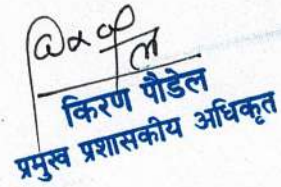 किरण पौडेल
प्रमुख प्रशासकीय अधिकृत